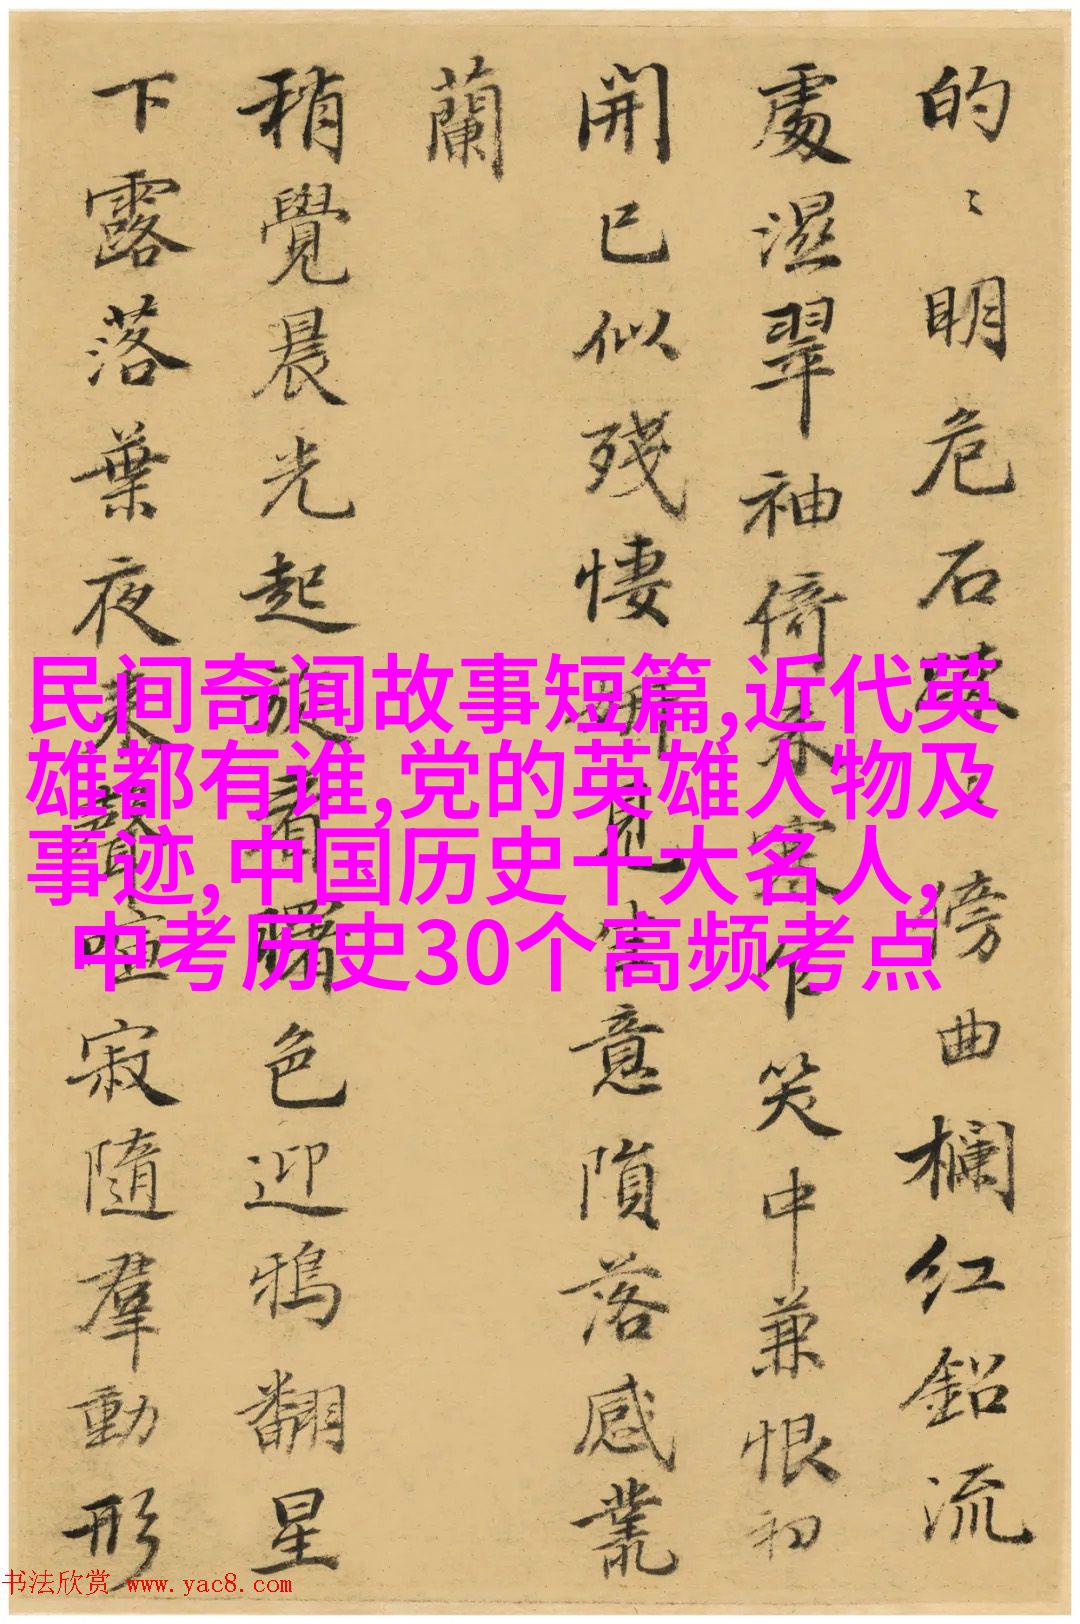 的〻明危石〻傍曲欄红鉛流
處濕翠袖倚來寒乍笑中兼恨初
開已似殘悽妍見生意隕落感叢
蘭
稍覺晨光起旋看曙色迎鴉翻星
下露落葉夜來聲喧寂隨羣動形
民间奇闻故事短篇,近代英
雄都有谁,党的英雄人物及
事迹,中国历史十大名人,
中考历史30个高频考点
书法欣赏 www.yac8.com